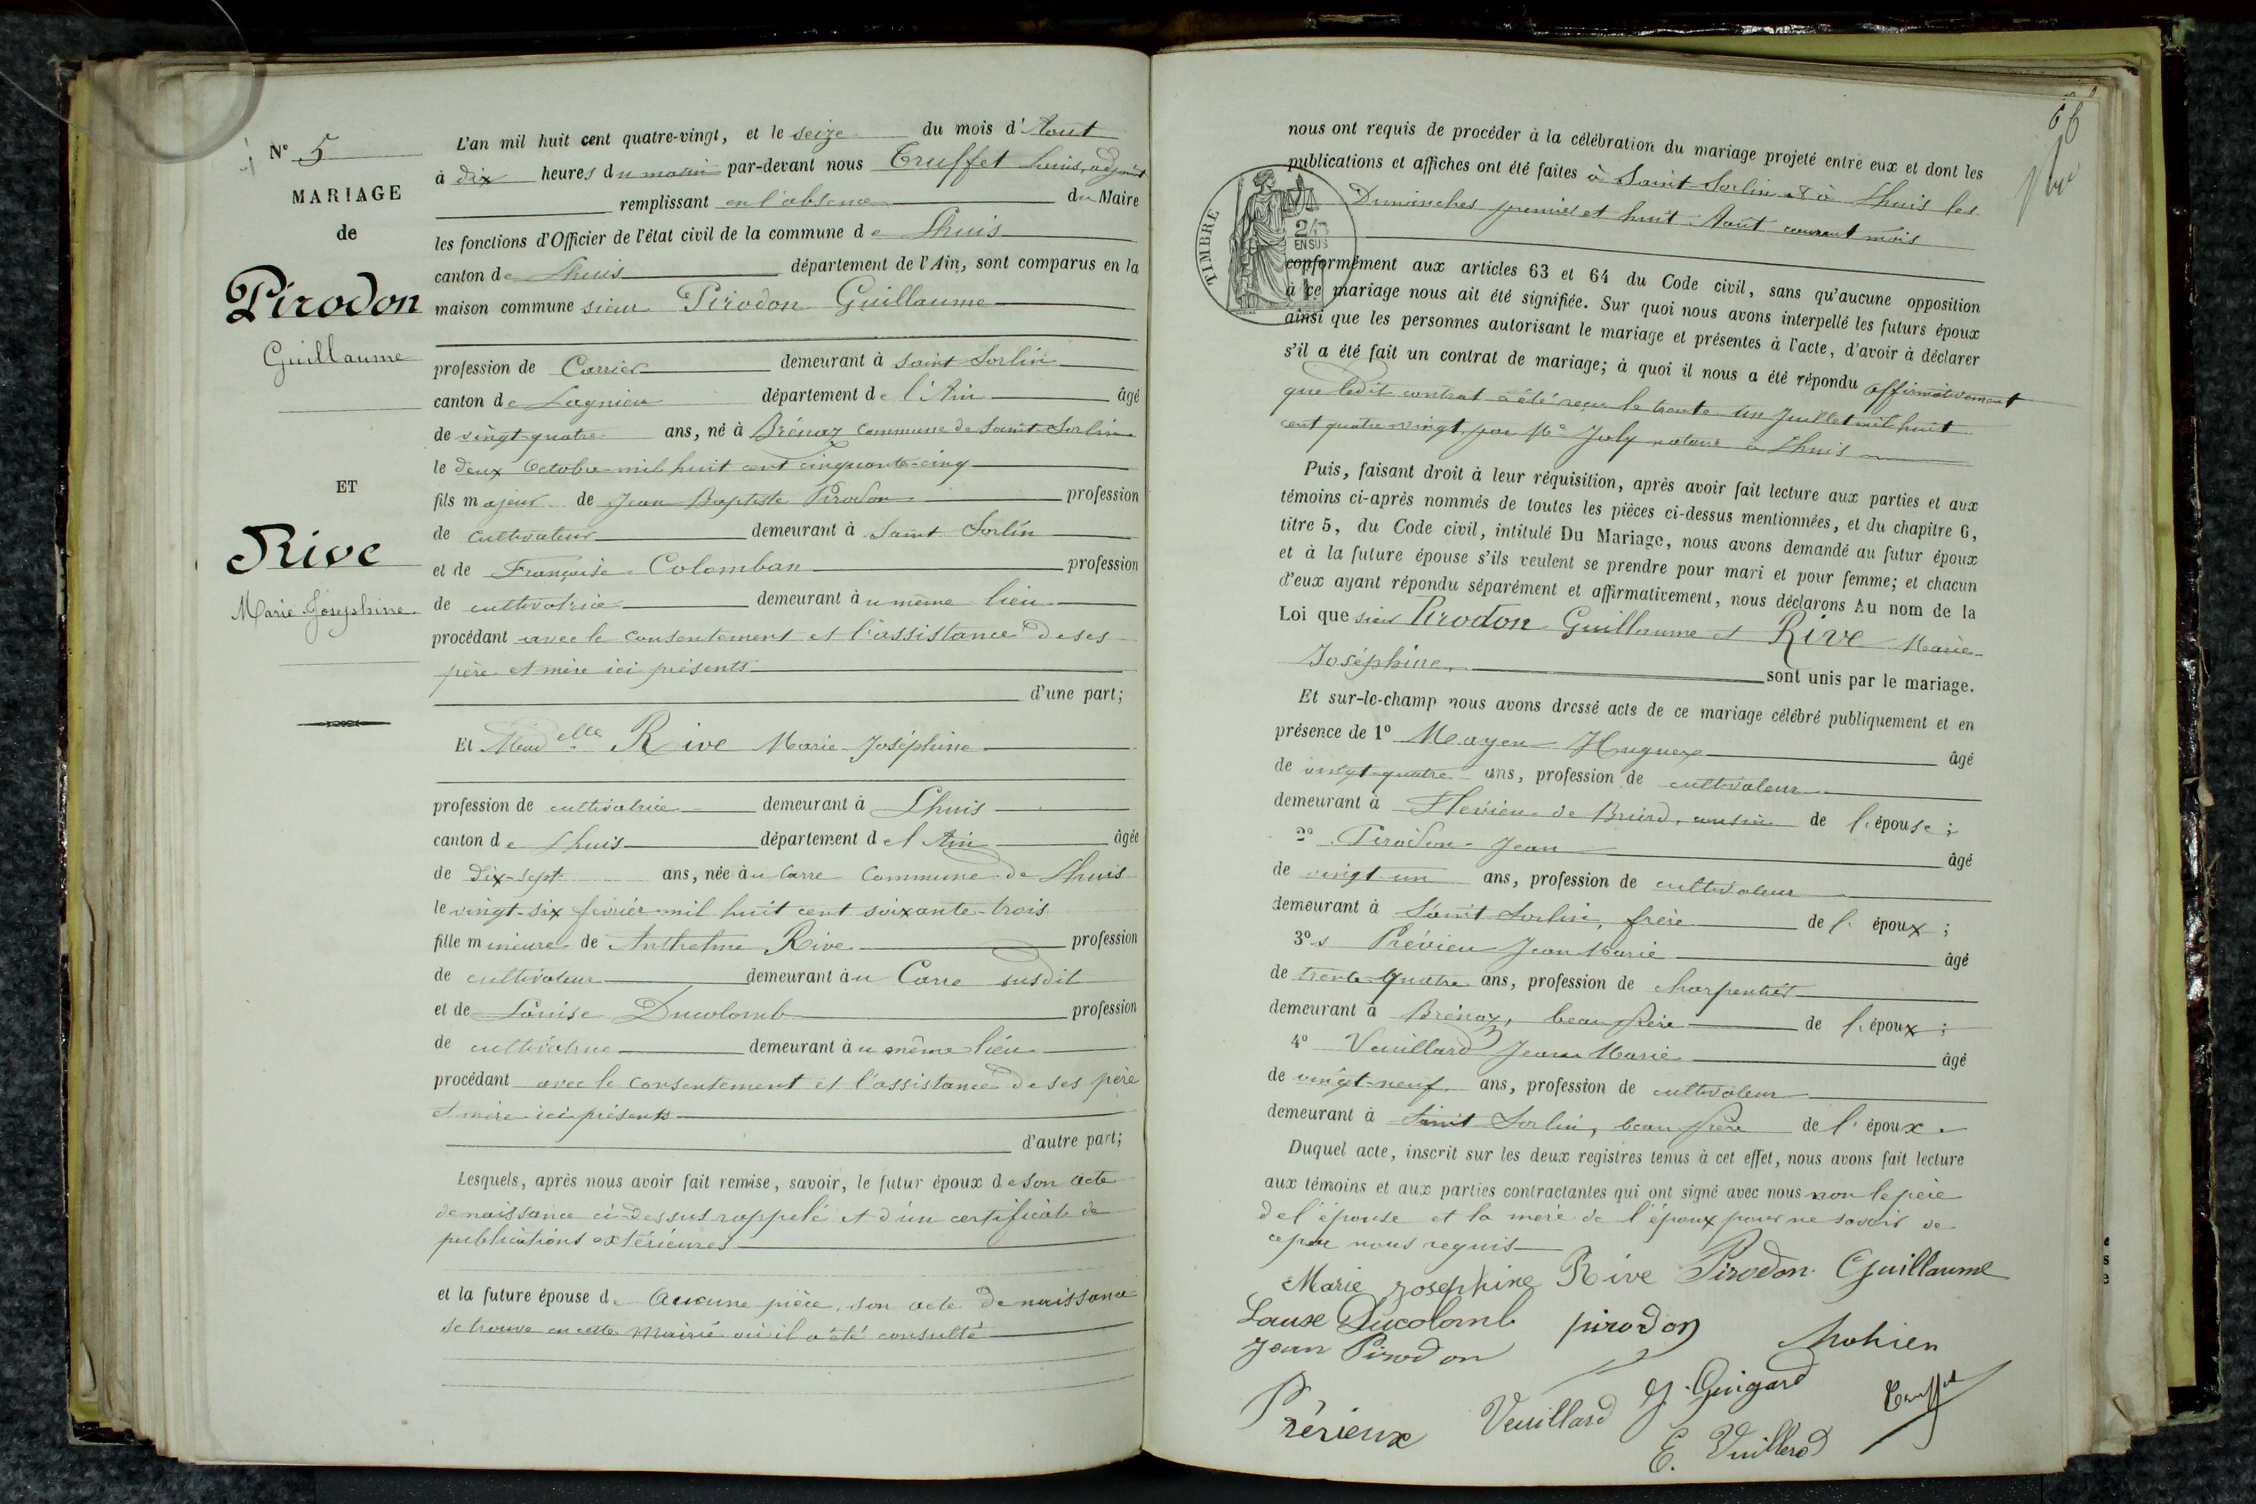 N° 5
MARIAGE
de
Pirodon
Guillaume
ET
Rive
Marie Joséphine
L'an mil huit cent quatre-vingt, et le seize du mois d'Aout
à dix heures du matin par-devant nous Truffet Louis, adjoint
remplissant en l'absence du Maire
les fonctions d'Officier de l'état civil de la commune de Lhuis
canton de Lhuis département de l'Ain, sont comparus en la
maison commune sieur Pirodon Guillaume
profession de Carrier demeurant à Saint Sorlin
canton de Lagnieu département de l'Ain âgé
de vingt-quatre ans, né à Brénaz commune de Saint-Sorlin
le deux Octobre mil huit cent cinquante-cinq
fils majeur de Jean Baptiste Pirodon profession
de cultivateur demeurant à Saint Sorlin
et de Françoise Colomban profession
de cultivatrice demeurant au même lieu
procédant avec le consentement et l'assistance de ses
père et mère ici présents
d'une part;
Et Mad elle Rive Marie Joséphine
profession de cultivatrice demeurant à Lhuis
canton de Lhuis département de l'Ain âgée
de dix-sept ans, née au Carre Commune de Lhuis
le vingt-six février mil huit cent soixante-trois
fille mineure de Anthelme Rive profession
de cultivateur demeurant au Carre susdit
et de Louise Ducolomb profession
de cultivatrice demeurant au même lieu
procédant avec le consentement et l'assistance de ses père
et mère ici présents
d'autre part;
Lesquels, après nous avoir fait remise, savoir, le futur époux de son acte
de naissance ci-dessus rappelé et d'un certificat de
publications extérieures
et la future épouse de Aucune pièce, son acte de naissance
se trouve en cette Mairie où il a été consulté
66
nous ont requis de procéder à la célébration du mariage projeté entre eux et dont les
publications et affiches ont été faites à Saint Sorlin & à Lhuis les
Dimanches premier et huit Aout courant mois
TIMBRE
2/10
EN SUS
conformément aux articles 63 et 64 du Code civil, sans qu'aucune opposition
à ce mariage nous ait été signifiée. Sur quoi nous avons interpellé les futurs époux
ainsi que les personnes autorisant le mariage et présentes à l'acte, d'avoir à déclarer
s'il a été fait un contrat de mariage; à quoi il nous a été répondu affirmativement
que ledit contrat a été reçu le trente-un Juillet mil huit
cent quatre vingt par Me Joly notaire à Lhuis
Puis, faisant droit à leur réquisition, après avoir fait lecture aux parties et aux
témoins ci-après nommés de toutes les pièces ci-dessus mentionnées, et du chapitre 6,
titre 5, du Code civil, intitulé Du Mariage, nous avons demandé au futur époux
et à la future épouse s'ils veulent se prendre pour mari et pour femme; et chacun
d'eux ayant répondu séparément et affirmativement, nous déclarons Au nom de la
Loi que sieur Pirodon Guillaume et Rive Marie
Joséphine, sont unis par le mariage.
Et sur-le-champ nous avons dressé acte de ce mariage célébré publiquement et en
présence de 1° Mayeu Hugues âgé
de vingt-quatre ans, profession de cultivateur
demeurant à Flévieu de Briord, cousin de l'épouse;
2° Pirodon Jean âgé
de vingt un ans, profession de cultivateur
demeurant à Saint Sorlin, frère de l'époux;
3° Prévieu Jean Marie âgé
de trente-quatre ans, profession de charpentier
demeurant à Brénaz, beau frère de l'époux;
4° Veuillard Jean Marie âgé
de vingt-neuf ans, profession de cultivateur
demeurant à Saint Sorlin, beau frère de l'époux.
Duquel acte, inscrit sur les deux registres tenus à cet effet, nous avons fait lecture
aux témoins et aux parties contractantes qui ont signé avec nous non le père
de l'épouse et la mère de l'époux pour ne savoir de
ce par nous requis
Marie Josephine Rive Pirodon Guillaume
Louise Ducolomb pirodon
Jean Pirodon
Prérieux Veuillard J. Guigard Truffet
E. Vuillerod